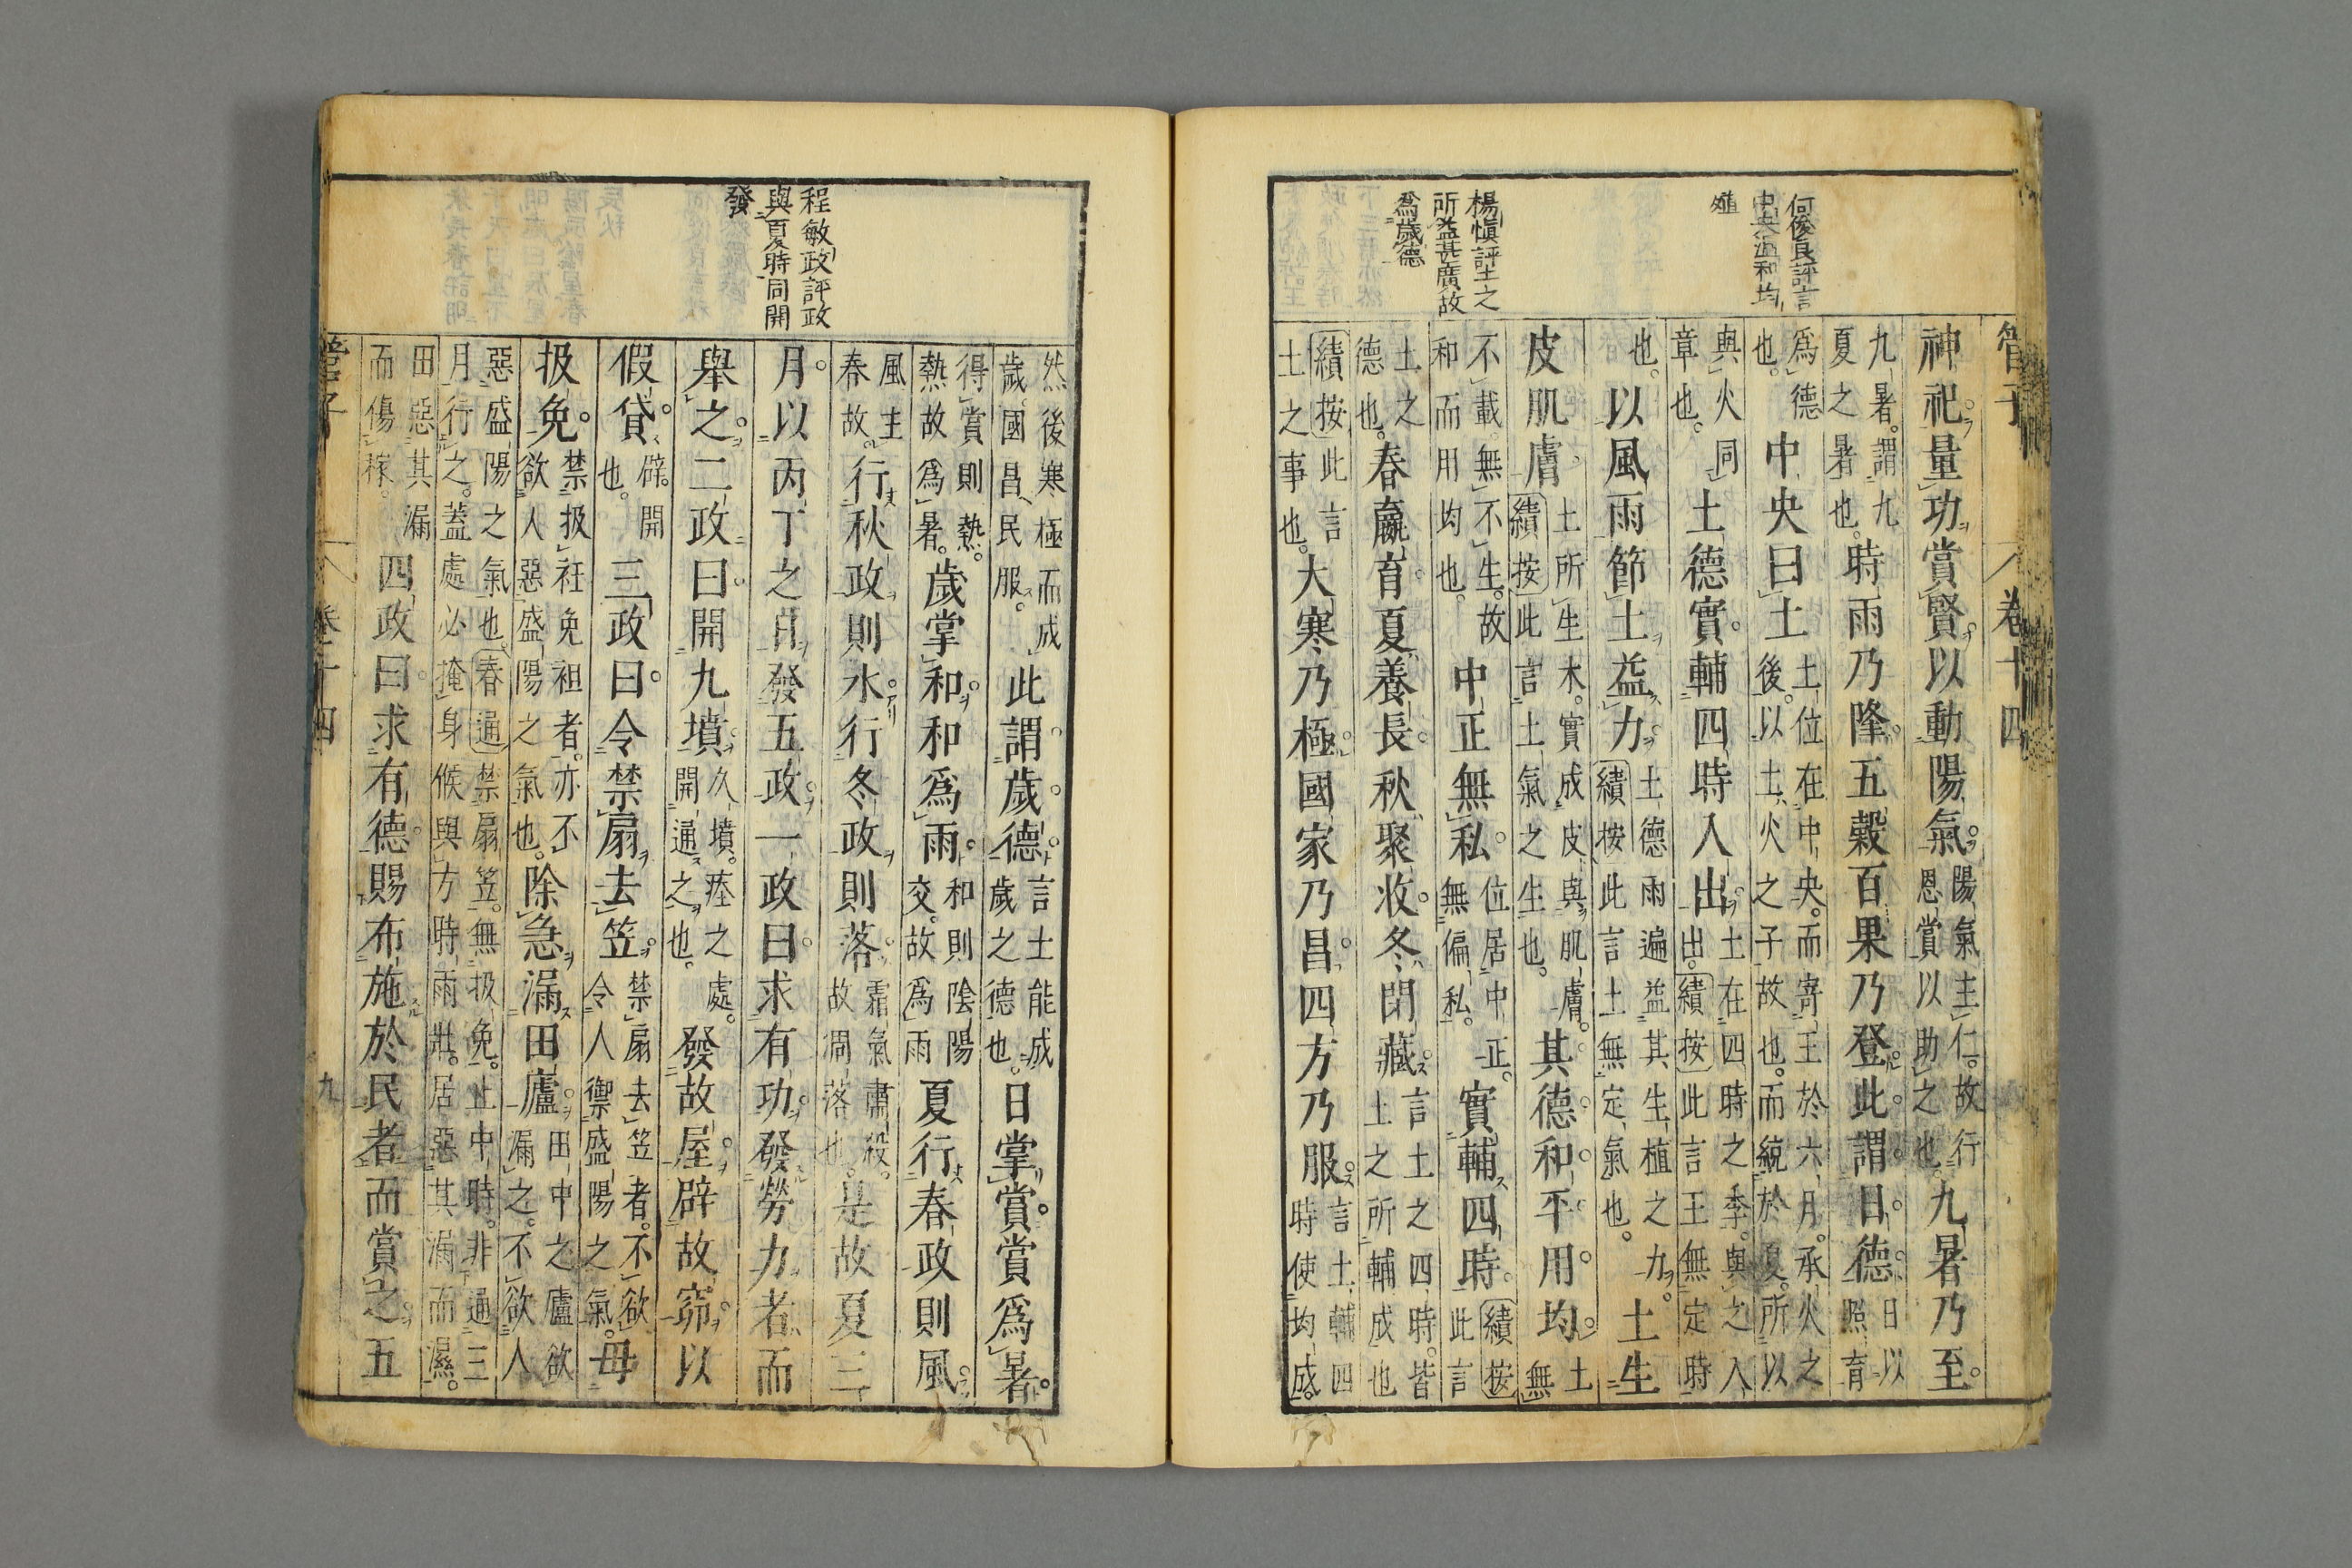 管子
卷十四
何俊良評言
中央溫和均
殖
楊愼評土之
所益甚廣故
爲歲德
神祀量功賞賢以動陽氣陽氣主仁故行恩賞以助之也九暑乃至
九暑謂九夏之暑也時雨乃降五穀百果乃登此謂日德日以照育
爲德也中央曰土土位在中央而寄王於六月承火之後以土火之子故也而統於夏所以
與火同章也土德實輔四時入出土在四時之季與之入出績按此言王無定時
也以風雨節土益力土德雨遍益其生植之力績按此言土無定氣也土生
皮肌膚土所生木實成皮與肌膚績按此言土氣之生也其德和平用均土無
不載無不生故和而用均也中正無私位居中正無偏私實輔四時績按此言
土之德也春嬴育夏養長秋聚收冬閉藏言土之四時皆土之所輔成也
績按此言土之事也大寒乃極國家乃昌四方乃服言土輔四時使均成
程敏政評政
與夏時同開
發
然後寒極而成歲國昌民服此謂歲德言土能成歲之德也日掌賞賞爲暑
得賞則熱熱故爲暑歲掌和和爲雨和則陰陽交故爲雨夏行春政則風
風主春故行秋政則水行冬政則落霜氣肅殺故凋落也是故夏三
月以丙丁之日發五政一政曰求有功發勞力者而
舉之二政曰開九墳久墳瘞之處開通之也發故屋辟故窌以
假貸辟開也三政曰令禁扇去笠禁扇去笠者不欲令人禦盛陽之氣毋
扱免禁扱衽免袒者亦不欲人惡盛陽之氣也除急漏田廬田中之廬欲漏之不欲人
惡盛陽之氣也春通禁扇笠無扱免止中時非通三月行之蓋處必掩身候與方時雨壯居惡其漏而濕
田惡其漏而傷稼四政曰求有德賜布施於民者而賞之五
管子
卷十四
九